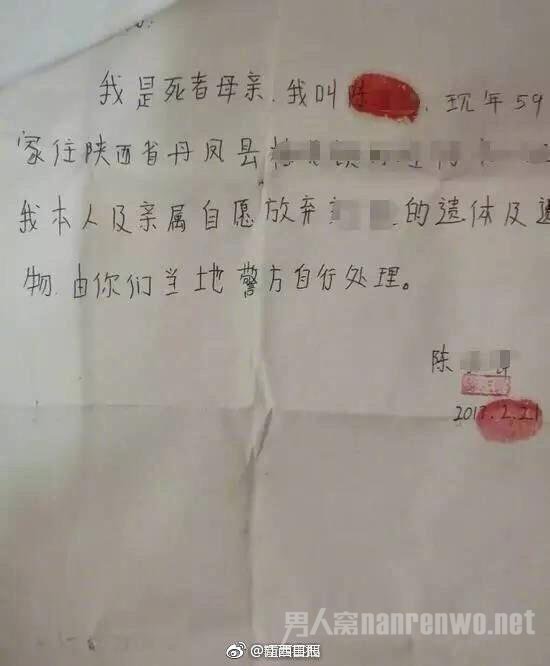 我是死者母亲.我叫陈 . 现年59
家住陕西省丹凤县
我本人及亲属自愿放弃 的遗体及遗
物.由你们当地警方自行处理。
陈
2017.2.21
男人窝nanrenwo.net
@江西晨报